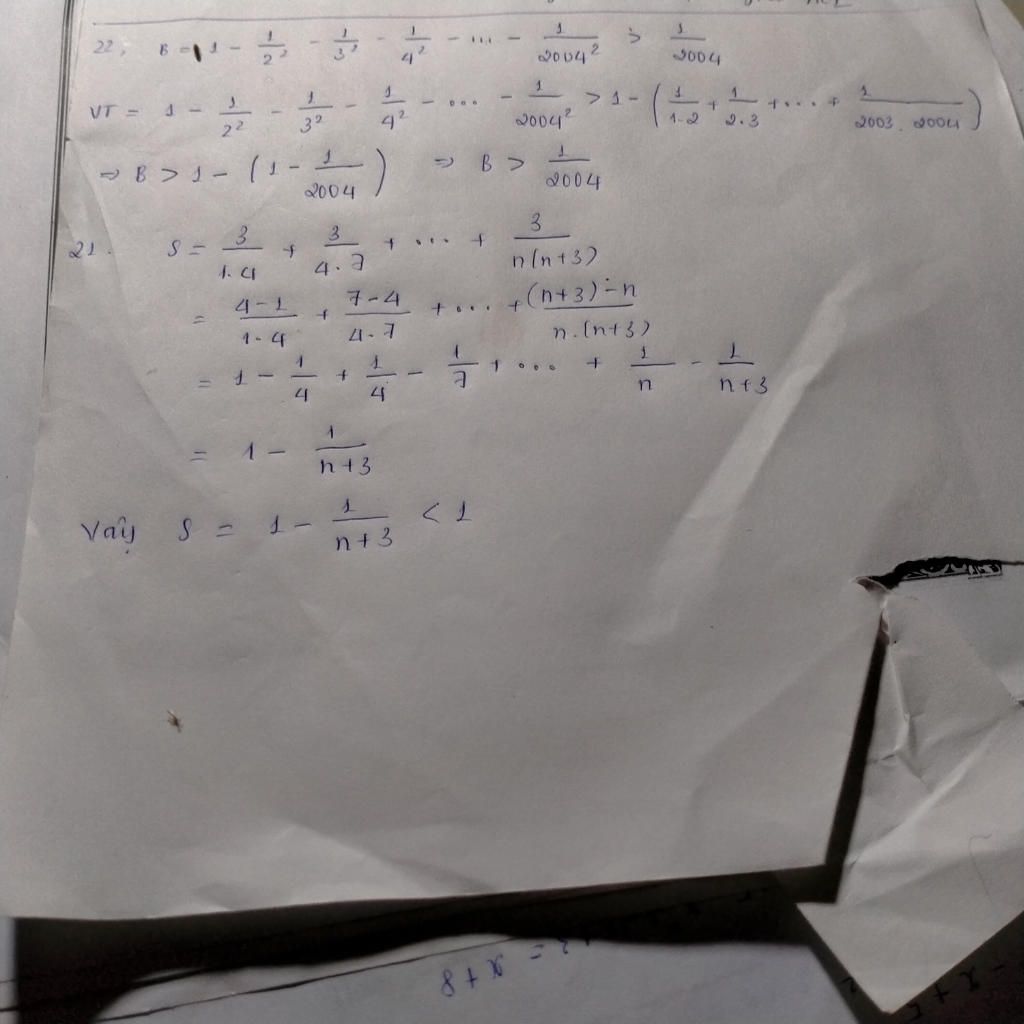 22, B = 1 - 1/2² - 1/3² - 1/4² - ... - 1/2004² > 1/2004
VT = 1 - 1/2² - 1/3² - 1/4² - ... - 1/2004² > 1 - (1/1.2 + 1/2.3 + ... + 1/2003.2004)
⇒ B > 1 - (1 - 1/2004) ⇒ B > 1/2004
21. S = 3/1.4 + 3/4.7 + ... + 3/n(n+3)
= 4-1/1.4 + 7-4/4.7 + ... + (n+3)-n/n.(n+3)
= 1 - 1/4 + 1/4 - 1/7 + ... + 1/n - 1/n+3
= 1 - 1/n+3
Vậy S = 1 - 1/n+3 < 1
= x + 8